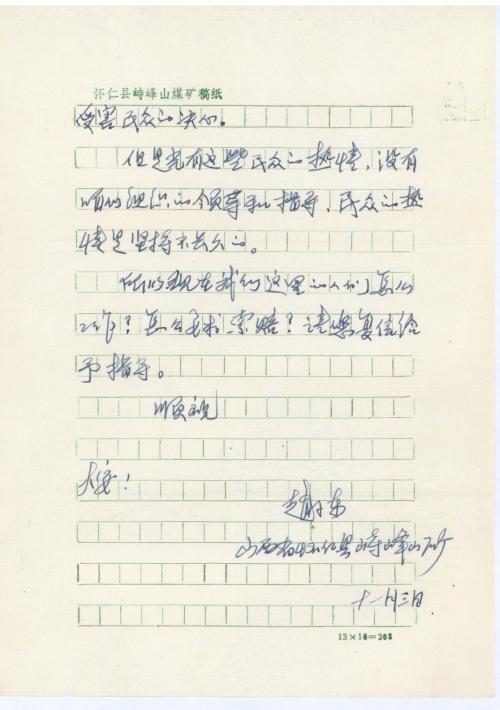 怀仁县峙峰山煤矿稿纸
受害民众的决心。
但是光有这些民众的热情，没有
咱们组织的领导和指导，民众的热
情是坚持不长久的。
所以现在我们这里的人们怎么
工作？怎么要求索赔？请您复信给
予指导。
顺祝
大安！
赵
山西省怀仁县峙峰山矿
十一月三日
13×16=208